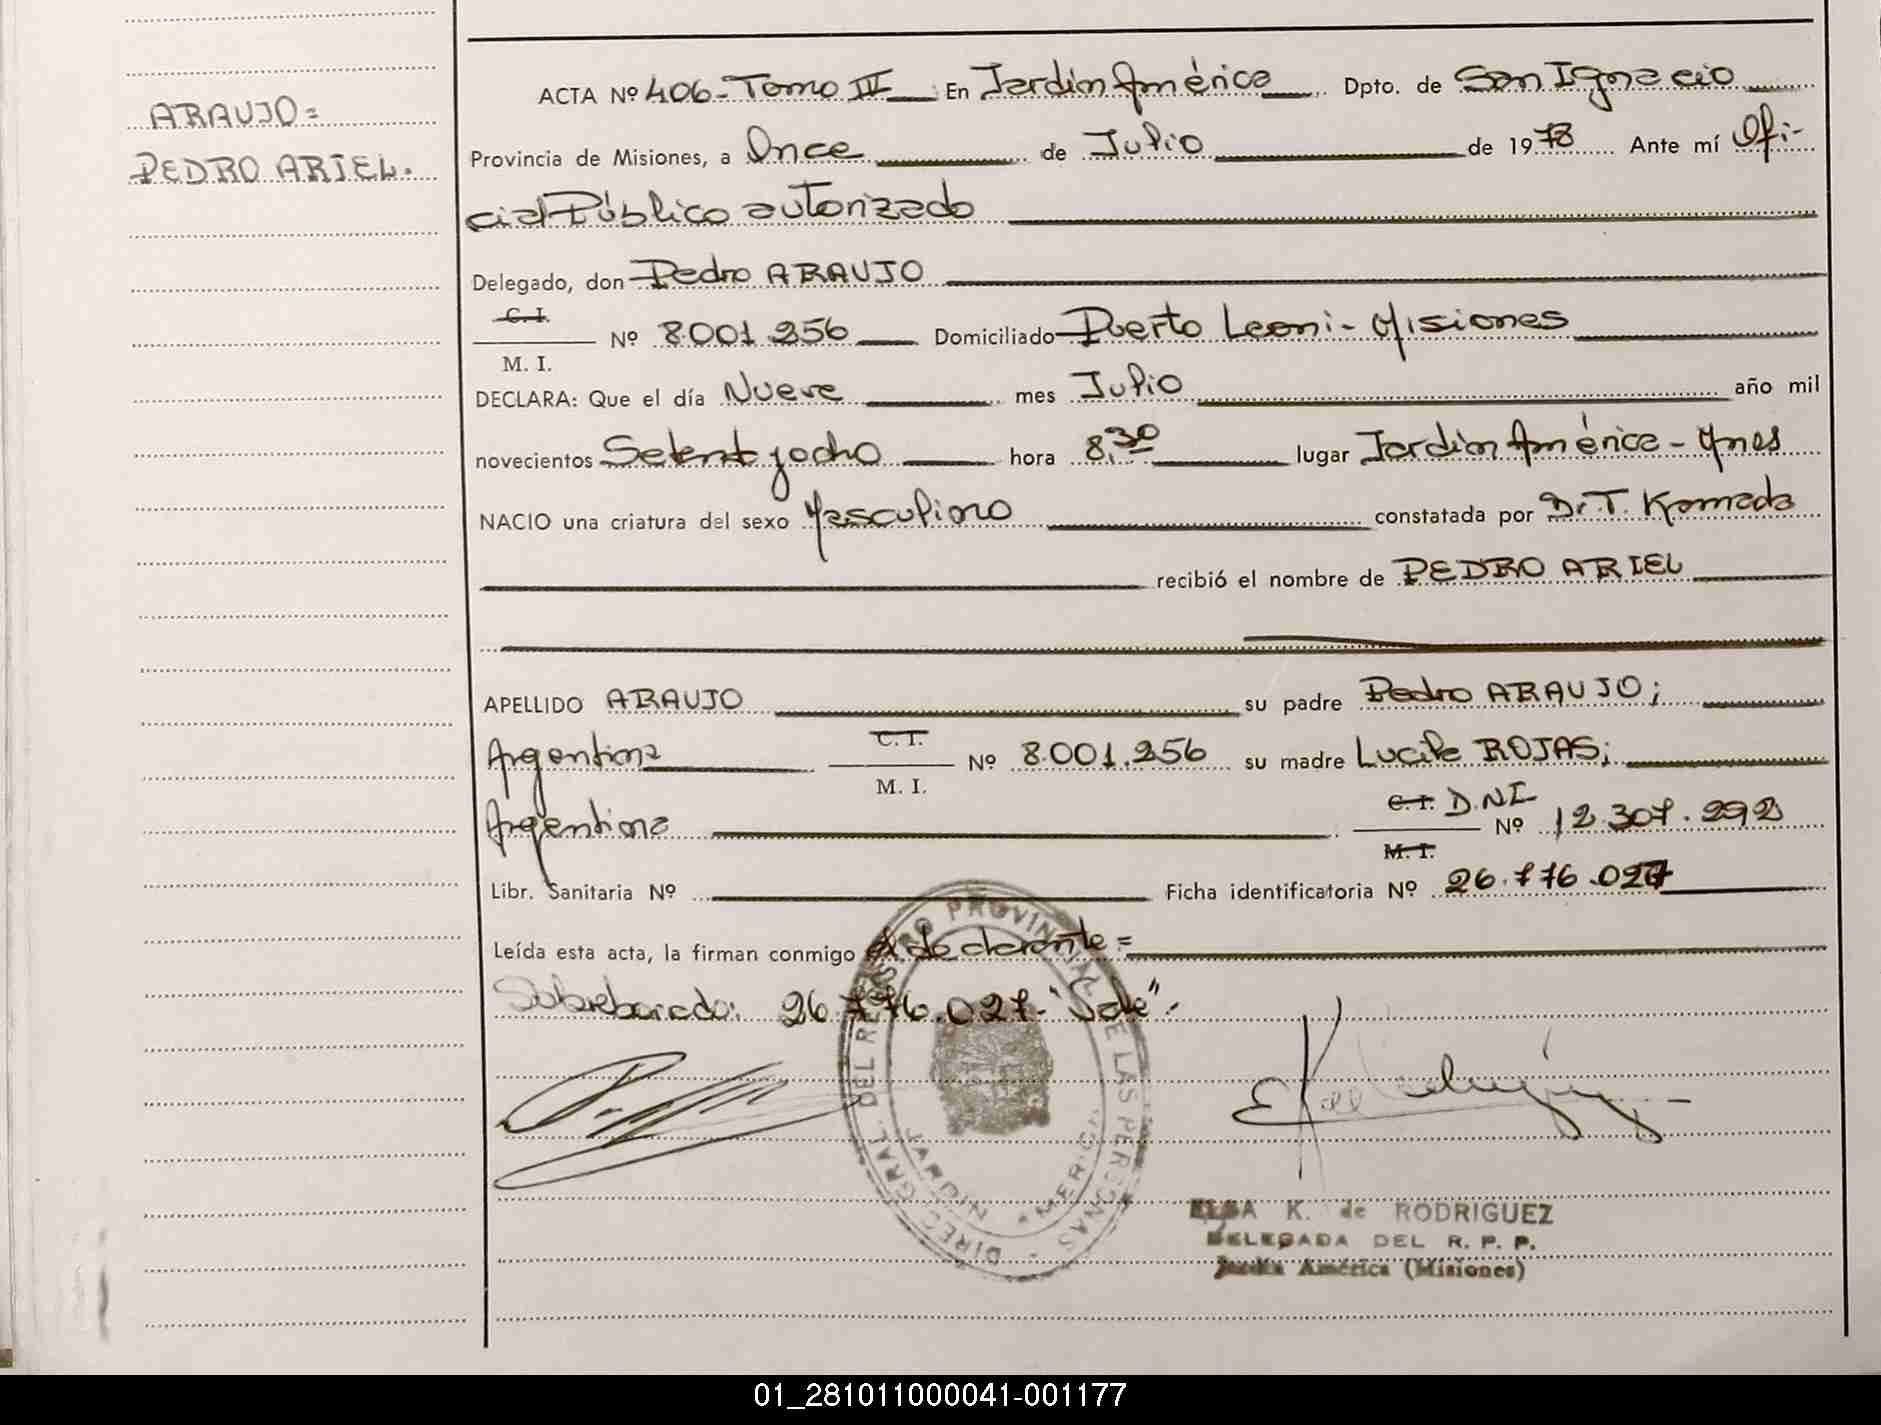 ARAUJO=
PEDRO ARIEL.
ACTA Nº 406-Tomo III En Jardín América Dpto. de San Ignacio
Provincia de Misiones, a Once de Julio de 1978 Ante mí Ofi-
cial Público autorizado
Delegado, don Pedro ARAUJO
C. I.
Nº 8.001.256 Domiciliado Puerto Leoni - Misiones
M. I.
DECLARA: Que el día Nueve mes Julio año mil
novecientos Setent yocho hora 8,30 lugar Jardín América - Mnes
NACIO una criatura del sexo Masculino constatada por Dr. T. Kamada
recibió el nombre de PEDRO ARIEL
APELLIDO ARAUJO su padre Pedro ARAUJO;
Argentina C. I. Nº 8.001.256 su madre Lucila ROJAS;
M. I.
Argentina C. I. D.N.I Nº 12.307.292
M. I.
Libr. Sanitaria Nº Ficha identificatoria Nº 26.776.027
Leída esta acta, la firman conmigo el declarante=
Sobreborado: 26.776.027-"Vale".-
DIREC. GRAL. DEL REGISTRO PROVINCIAL DE LAS PERSONAS
JARDIN AMERICA
ELSA K. de RODRIGUEZ
DELEGADA DEL R. P. P.
Jardín América (Misiones)
01_281011000041-001177